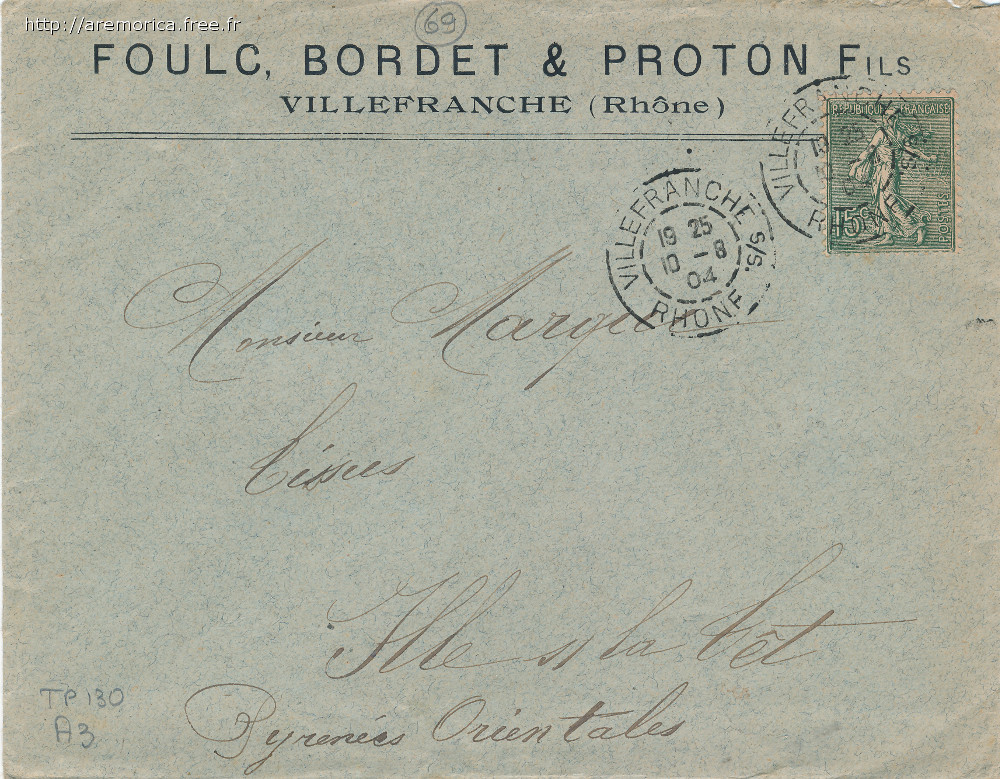 http://aremorica.free.fr
69
FOULC, BORDET & PROTON FILS
VILLEFRANCHE (Rhône)
REPUBLIQUE FRANÇAISE
15c
POSTES
VILLEFRANCHE S/S.
19 25
10 - 8
04
RHONE
VILLEFRANCHE
RHONE
Monsieur
Tissus
Ille s/ la Têt
Pyrenées Orientales
TP 130
A3